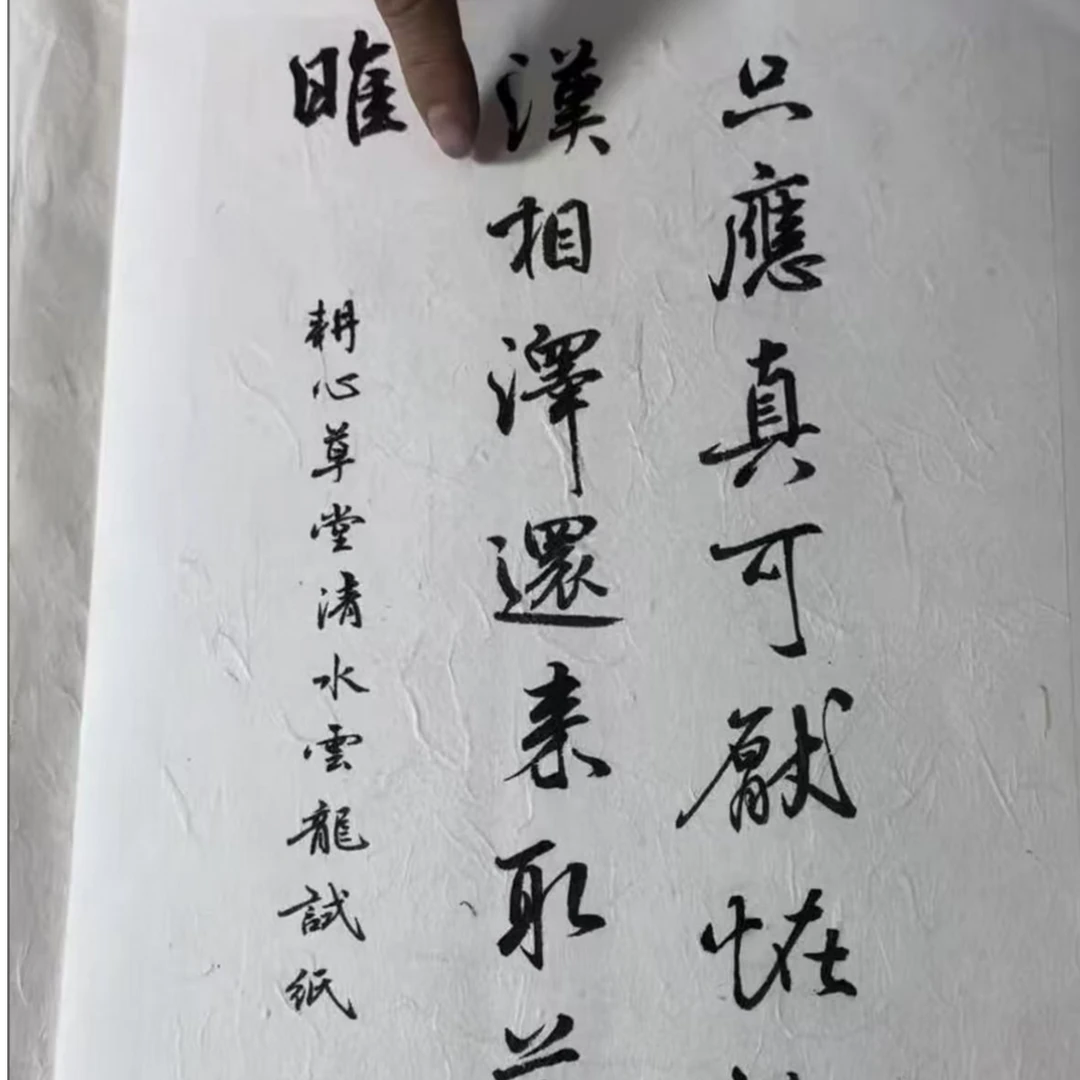 只應真可厭恠
漢相澤還来取
睢
耕心草堂清水雲龍試紙